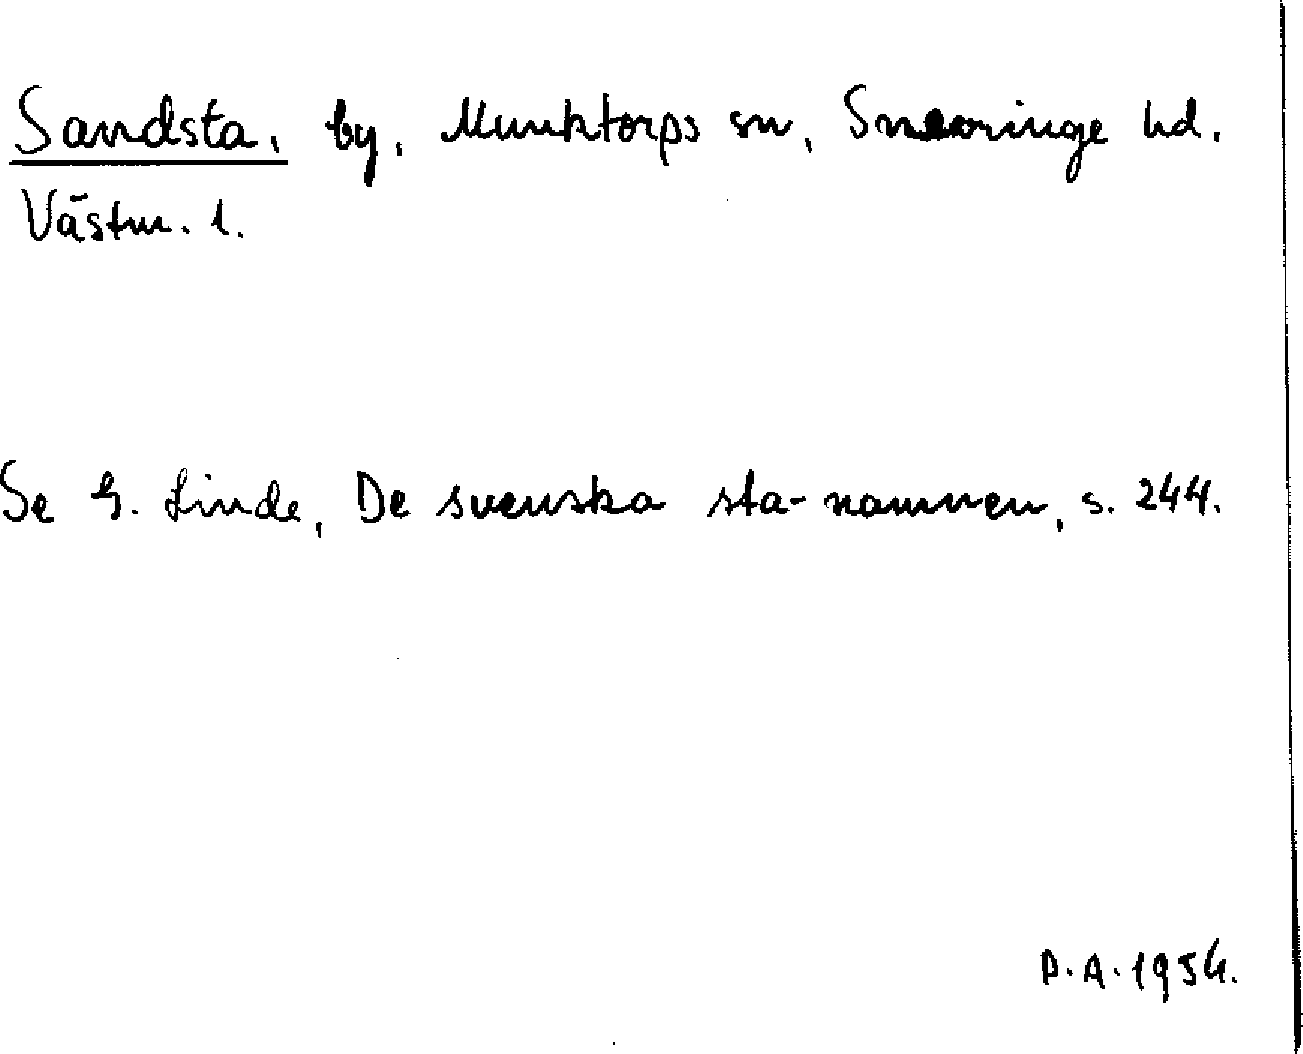 Sandsta, by, Munktorps sn, Snevringe hd.
Västm. l.
Se G. Linde, De svenska sta-namnen, s. 244.
D.A. 1954.